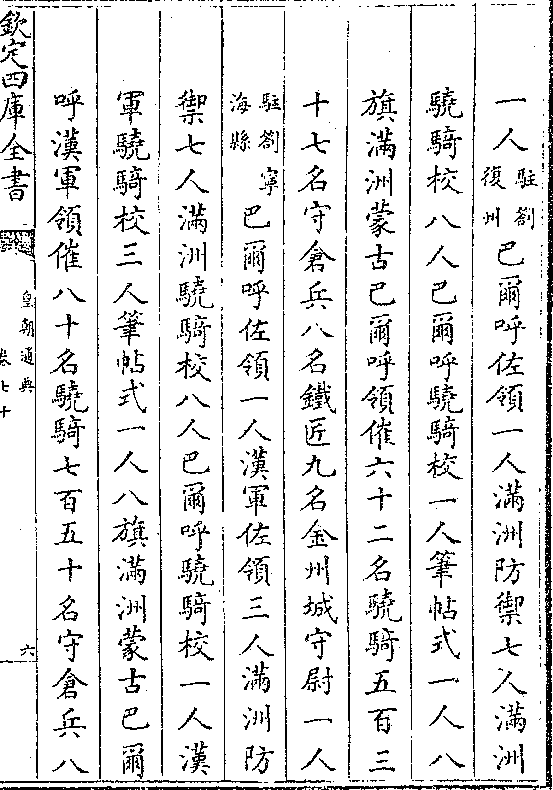 一人駐劄復州巴爾呼佐領一人滿洲防禦七人滿洲
驍騎校八人巴爾呼驍騎校一人筆帖式一人八
旗滿洲蒙古巴爾呼領催六十二名驍騎五百三
十七名守倉兵八名鐵匠九名金州城守尉一人
駐劄寧海縣巴爾呼佐領一人漢軍佐領三人滿洲防
禦七人滿洲驍騎校八人巴爾呼驍騎校一人漢
軍驍騎校三人筆帖式一人八旗滿洲蒙古巴爾
呼漢軍領催八十名驍騎七百五十名守倉兵八
欽定四庫全書
皇朝通典
卷七十
六